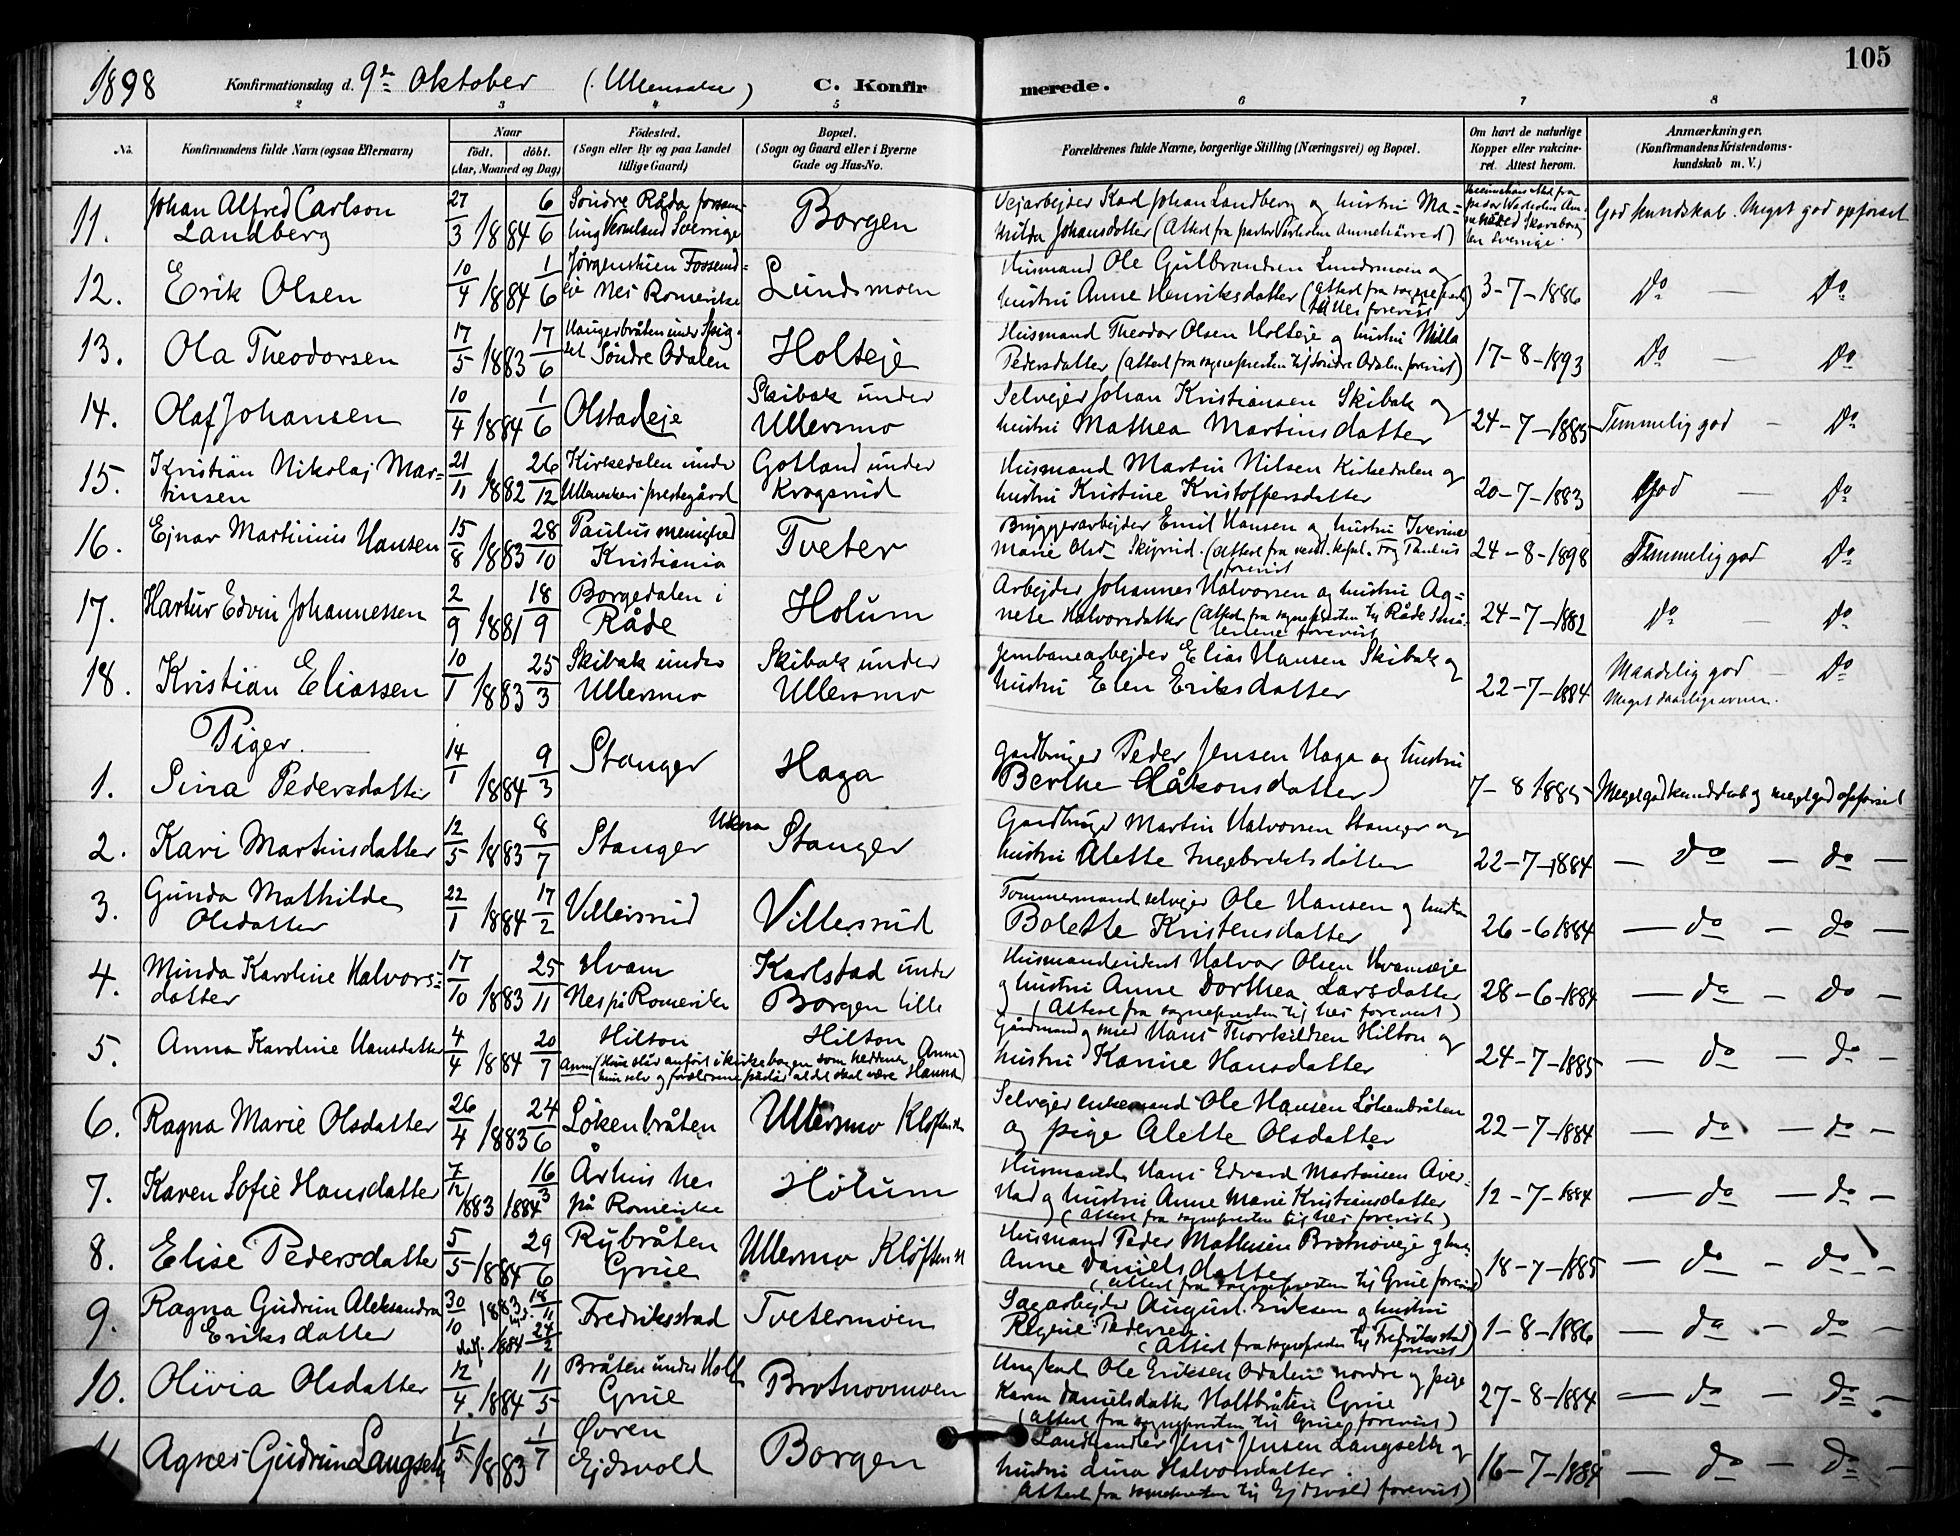 105
1898 Konfirmationsdag d. 9de Oktober (Ullensaker) C. Konfirmerede.
2 3 4 5 6 7 8
No. Konfirmandens fulde Navn (ogsaa Efternavn) Naar født. døbt. (Aar, Maaned og Dag) Fødested. (Sogn eller By og paa Landet tillige Gaard) Bopæl. (Sogn og Gaard eller i Byerne Gade og Hus-No. Forældrenes fulde Navne, borgerlige Stilling (Næringsvei) og Bopæl. Om havt de naturlige Kopper eller vakcineret. Attest herom. Anmærkninger. (Konfirmandens Kristendomskundskab m. V.)
11. Johan Alfred Carlson Landberg 27/3 1884 6/6 Söndre Råda forsamling Vermland Sverrige Borgen Vejarbejder Karl Johan Landberg og hustru Mathilda Johansdatter (Attest fra pastor God kundskab. Meget god opførsel
12. Erik Olsen 10/4 1884 1/6 Nes Romerike Lundsmoen Husmand Ole Gulbrandsen Lundsmoen og hustru Anne Henriksdatter (attest fra sognepresten til Nes forevist) 3-7-1886 Do — Do
13. Ola Theodorsen 17/5 1883 17/6 Söndre Odalen Holteje Husmand Theodor Olsen Holteje og hustru Milla Pedersdatter (Attest fra sognepresten til söndre Odalen forevist) 17-8-1893 Do — Do
14. Olaf Johansen 10/4 1884 1/6 Olstadeje Skibak under Ullersmo Selvejer Johan Kristiansen Skibak og hustru Mathea Martinsdatter 24-7-1885 Temmelig god — Do
15. Kristian Nikolaj Martinsen 21/11 1882 26/12 Kirkedalen under Ullensakers prestegård Gotland under Krogsrud Husmand Martin Nilsen Kirkedalen og hustru Kristine Kristoffersdatter 20-7-1883 God — Do
16. Ejnar Martinius Hansen 15/8 1883 28/10 Paulus menighed Kristiania Tveter Bryggerarbejder Emil Hansen og hustru Iverine Marie Olsd Skigrud. (Attest fra Paulus forevist 24-8-1898 Temmelig god Do
17. Hartur Edvin Johannessen 2/9 1881 18/9 Borgedalen i Råde Holum Arbejder Johannes Halvorsen og hustru Agnete Halvorsdatter (Attest fra sognepresten til Råde Smålenene forevist 24-7-1882 Do Do
18. Kristian Eliassen 10/1 1883 25/3 Skibak under Ullersmo Skibak under Ullersmo Jernbanearbejder Elias Hansen Skibak og hustru Elen Eriksdatter 22-7-1884 Maadelig god — Do Meget daarlige evner.
Piger.
1. Sina Pedersdatter 14/1 1884 9/3 Stanger Haga Gardbruger Peder Jensen Haga og hustru Berthe Håkonsdatter 7-8 1885 Meget god kundskab og meget god opførsel
2. Kari Martinsdatter 12/5 1883 8/7 Stanger Stanger Gardbruger Martin Halvorsen Stanger og hustru Alette Ingebretsdatter 22-7-1884 — do — do —
3. Gunda Mathilde Olsdatter 22/1 1884 17/2 Villersrud Villersrud Tommermand selvejer Ole Hansen og hustru Bolette Kristensdatter 26-6 1884 — do — do —
4. Minda Karoline Halvorsdatter 17/10 1883 25/11 Hvam Nes på Romerike Karlstad under Borgen lille Halvor Olsen Hvamseje og hustru Anne Dorthea Larsdatter (Attest fra sognepresten til Nes forevist) 28-6-1884 — do — do —
5. Anna Karoline Hansdatter 4/4 1884 20/7 Hilton Hilton Anm (Hun står anført i kirkebogen som heddende Anna, hun selv og forældrene påstår at det skal være Hanna) Gårdmand og smed Hans Thorkildsen Hilton og hustru Karine Hansdatter 24-7-1885 — do — do —
6. Ragna Marie Olsdatter 26/4 1883 24/6 Lökenbråten Ullersmo Kløften Selvejer enkemand Ole Hansen Lökenbråten og pige Alette Olsdatter 22-7-1884 — do — do —
7. Karen Sofie Hansdatter 7/12 1883 16/3 1884 Århus Nes på Romerike Holum Husmand Hans Edvard Martinsen Averstad og hustru Anne Marie Kristiansdatter (Attest fra sognepresten til Nes forevist) 12-7-1884 — do — do —
8. Elise Pedersdatter 5/5 1884 29/6 Rybråten Grue Ullersmo Kløften Husmand Peder Mathisen Brotnoveje og hustru Anne Danielsdatter (Attest fra sognepresten til Grue forevist) 18-7-1885 — do — do —
9. Ragna Gudrun Aleksandra Eriksdatter 30/10 1883 18/11 1884 24/2 Fredriksstad Tvetermoen Sagarbejder August Eriksen og hustru Regine Pedersen (Attest fra sognepresten til Fredriksstad forevist) 1-8-1886 — do — do —
10. Olivia Olsdatter 12/4 1884 11/5 Bråten under Holt Grue Brotnovmoen Ungkarl Ole Eriksen Odalen nordre og pige Karen Danielsdatter Holtbråten Grue (Attest fra sognepresten til Grue forevist) 27-8-1884 — do — do —
11. Agnes Gudrun Langseth 1/5 1883 1/7 Øvren Ejdsvold Borgen Landhandler Jens Jensen Langseth og hustru Lina Halvorsdatter. Attest fra sognepresten til Ejdsvold forevist) 16-7-1884 — do — do —